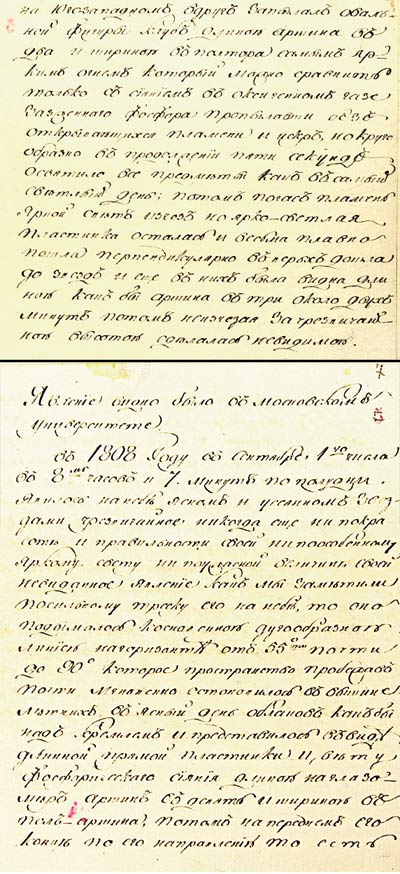 на Югозападномъ вдругъ запылалъ оваль-
ной фигуры клубъ длиною аршина въ
два и шириною въ полтора самымъ яр-
кимъ огнемъ который можно сравнить
только съ сіяніемъ въ оксигенномъ газе
Зазженнаго фосфора пропылавши безъ
открывающихся пламени и искръ, но круго
образно въ продолженіи пяти секундъ
Осветило все предметы какъ въ самый
светлый день; потомъ погасъ пламень
Яркой светъ изчезъ но ярко-светлая
Пластинка осталась и весьма плавно
пошла перпендикулярно въ верьхъ дошла
до звездъ и еще въ нихъ была видна дли
ною какъ бы аршина въ три около двухъ
минутъ потомъ неизчезая за чрезвычай-
ною высотою сделалась невидимою.
7
Явленіе видно было въ московскомъ
университете
въ 1808 Году въ Сентябре 1го числа
въ 8мь часовъ и 7. минутъ по полудни
Явилось на небе Ясномъ и уселиномъ звез-
дами чрезвычайное никогда еще ни по кра
соте и правильности своей ни по особенному
Яркому свету ни по уласной величине своей
невиданное Явленіе какъ мы заметили
По сильному треску его на небе, то оно
подымалось косвенною дугообразною
линіею на горизонте отъ 55 почти
до 90° которое пространство пробежавъ
Почти мгновенно остановилось въ вышине
летнихъ въ Ясный день облаковъ какъ бы
надъ Кремлемъ и представилось въ виде
длинной прямой пластинки и, въту
Фосфорическаго сіянія длиною на глазо-
мыръ аршинъ въ девять и шириною въ
полъ-аршина, потомъ на переднемъ его
конце по его направленію то есть